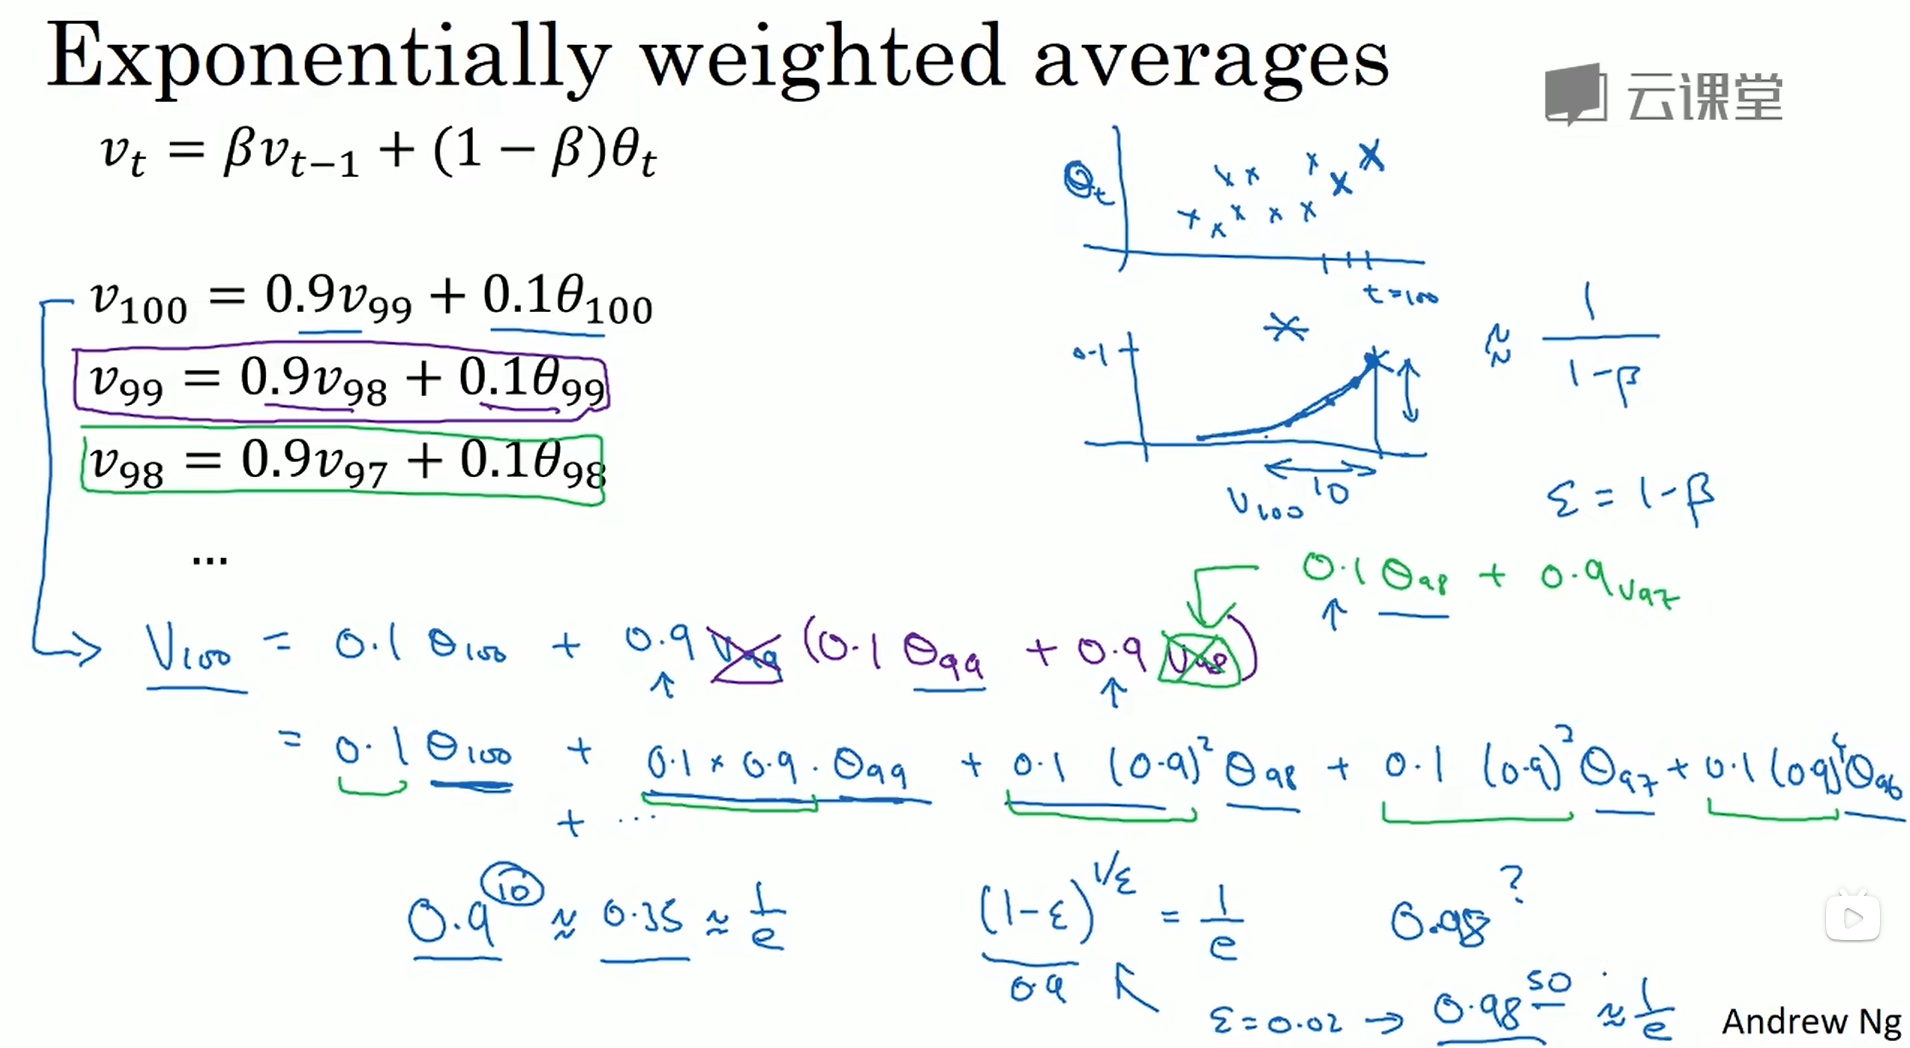 Exponentially weighted averages
云课堂
v_t = βv_{t−1} + (1 − β)θ_t
θ_t
t=100
v_{100} = 0.9v_{99} + 0.1θ_{100}
v_{99} = 0.9v_{98} + 0.1θ_{99}
v_{98} = 0.9v_{97} + 0.1θ_{98}
...
0.1
10
V_{100}
≈ 1/(1-β)
ε = 1-β
0.1 θ_{98} + 0.9 v_{97}
V_{100} = 0.1 θ_{100} + 0.9 v_{99} (0.1 θ_{99} + 0.9 v_{98})
= 0.1 θ_{100} + 0.1 × 0.9 · θ_{99} + 0.1 (0.9)^2 θ_{98} + 0.1 (0.9)^3 θ_{97} + 0.1 (0.9)^4 θ_{96}
+ ...
0.9^{10} ≈ 0.35 ≈ 1/e
(1-ε)^{1/ε} = 1/e
0.9
0.98^?
ε = 0.02 → 0.98^{50} ≈ 1/e
Andrew Ng